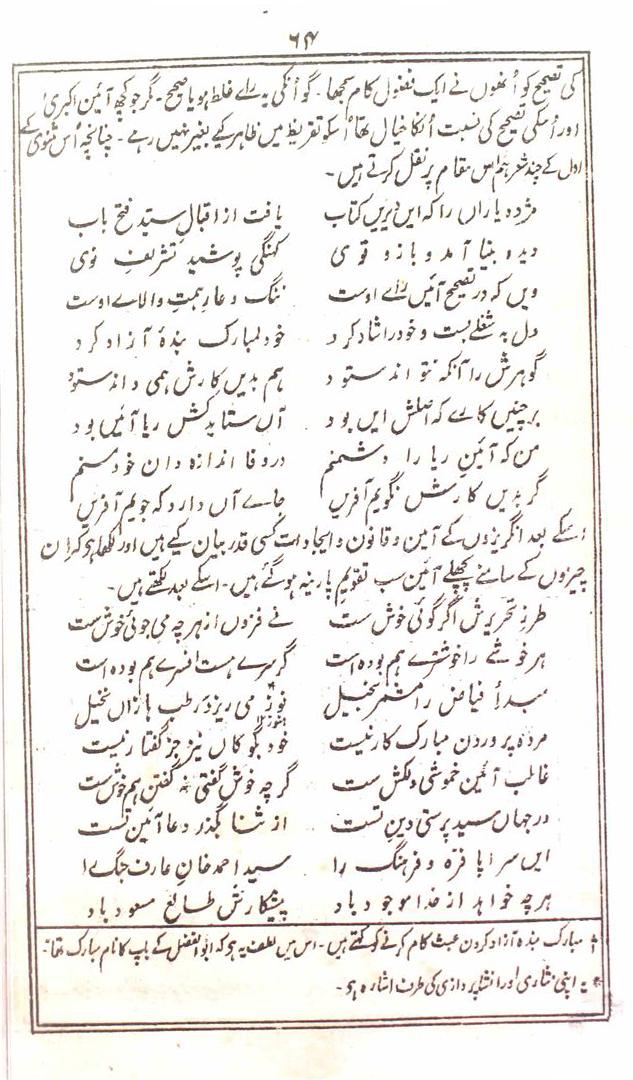 ۶۴
کی تصحیح کو اُنھوں نے ایک فضول کام سمجھا۔ گو اُنکی یہ راے غلط ہو یا صحیح۔ مگر جو کچھ آئین اکبری
اور اُسکی تصحیح کی نسبت اُنکا خیال تھا اُسکو تقریظ میں ظاہر کیے بغیر نہیں رہے۔ چنانچہ اُس مثنوی کے
اول کے چند شعر ہم اس مقام پر نقل کرتے ہیں۔
مژدہ یاراں را کہ ایں دیریں کتاب یافت از اقبال سید فتح باب
دیدہ بینا آمد و بازو قوی کہنگی پوشید تشریف نوی
ویں کہ در تصحیح آئیں راے اوست ننگ و عار ہمت والاے اوست
دل بہ شغلے بست و خود را شاد کرد خود مبارک بندۂ آزاد کرد
گوہرش را آنکہ نتواند ستود ہم بدیں کارش ہمی داند ستود
بر چنیں کارے کہ اصلش ایں بود آں ستاید کش ریا آئیں بود
من کہ آئین ریا را دشمنم در وفا اندازہ دان خود منم
گر بدیں کارش نگویم آفریں جاے آں دارد کہ جویم آفریں
اسکے بعد انگریزوں کے آئین و قانون و ایجادات کسی قدر بیان کیے ہیں اور لکھا ہی کہ اِن
چیزوں کے سامنے پچھلے آئین سب تقویم پارینہ ہو گئے ہیں۔ اسکے بعد لکھتے ہیں۔
طرز تحریرش اگر گوئی خوش ست نے فزوں از ہر چہ می جوئی خوش ست
ہر خوشے را خوشترے ہم بودہ است گر سرے ہست افسرے ہم بودہ است
مبدأ فیاض را مشمر بخیل نوز می ریزد رطب ہا زاں نخیل
ہنوز
مردہ پروردن مبارک کار نیست خود بگو کاں نیز جز گفتار نیست
غالب آئین خموشی دلکش ست گرچہ خوش گفتی نہ گفتن ہم خوش ست
در جہاں سید پرستی دین تست از ثنا بگذر دعا آئین تست
ایں سراپا فرّہ و فرہنگ را سید احمد خان عارف جنگ را
ہر چہ خواہد از خدا موجود باد پیشکارش طالع مسعود باد
مبارک بندہ آزاد کردن عبث کام کرنے کو کہتے ہیں۔ اس میں لطف یہ ہو کہ ابو الفضل کے باپ کا نام مبارک تھا۔
* یہ اپنی نثاری اور انشا پردازی کی طرف اشارہ ہو۔